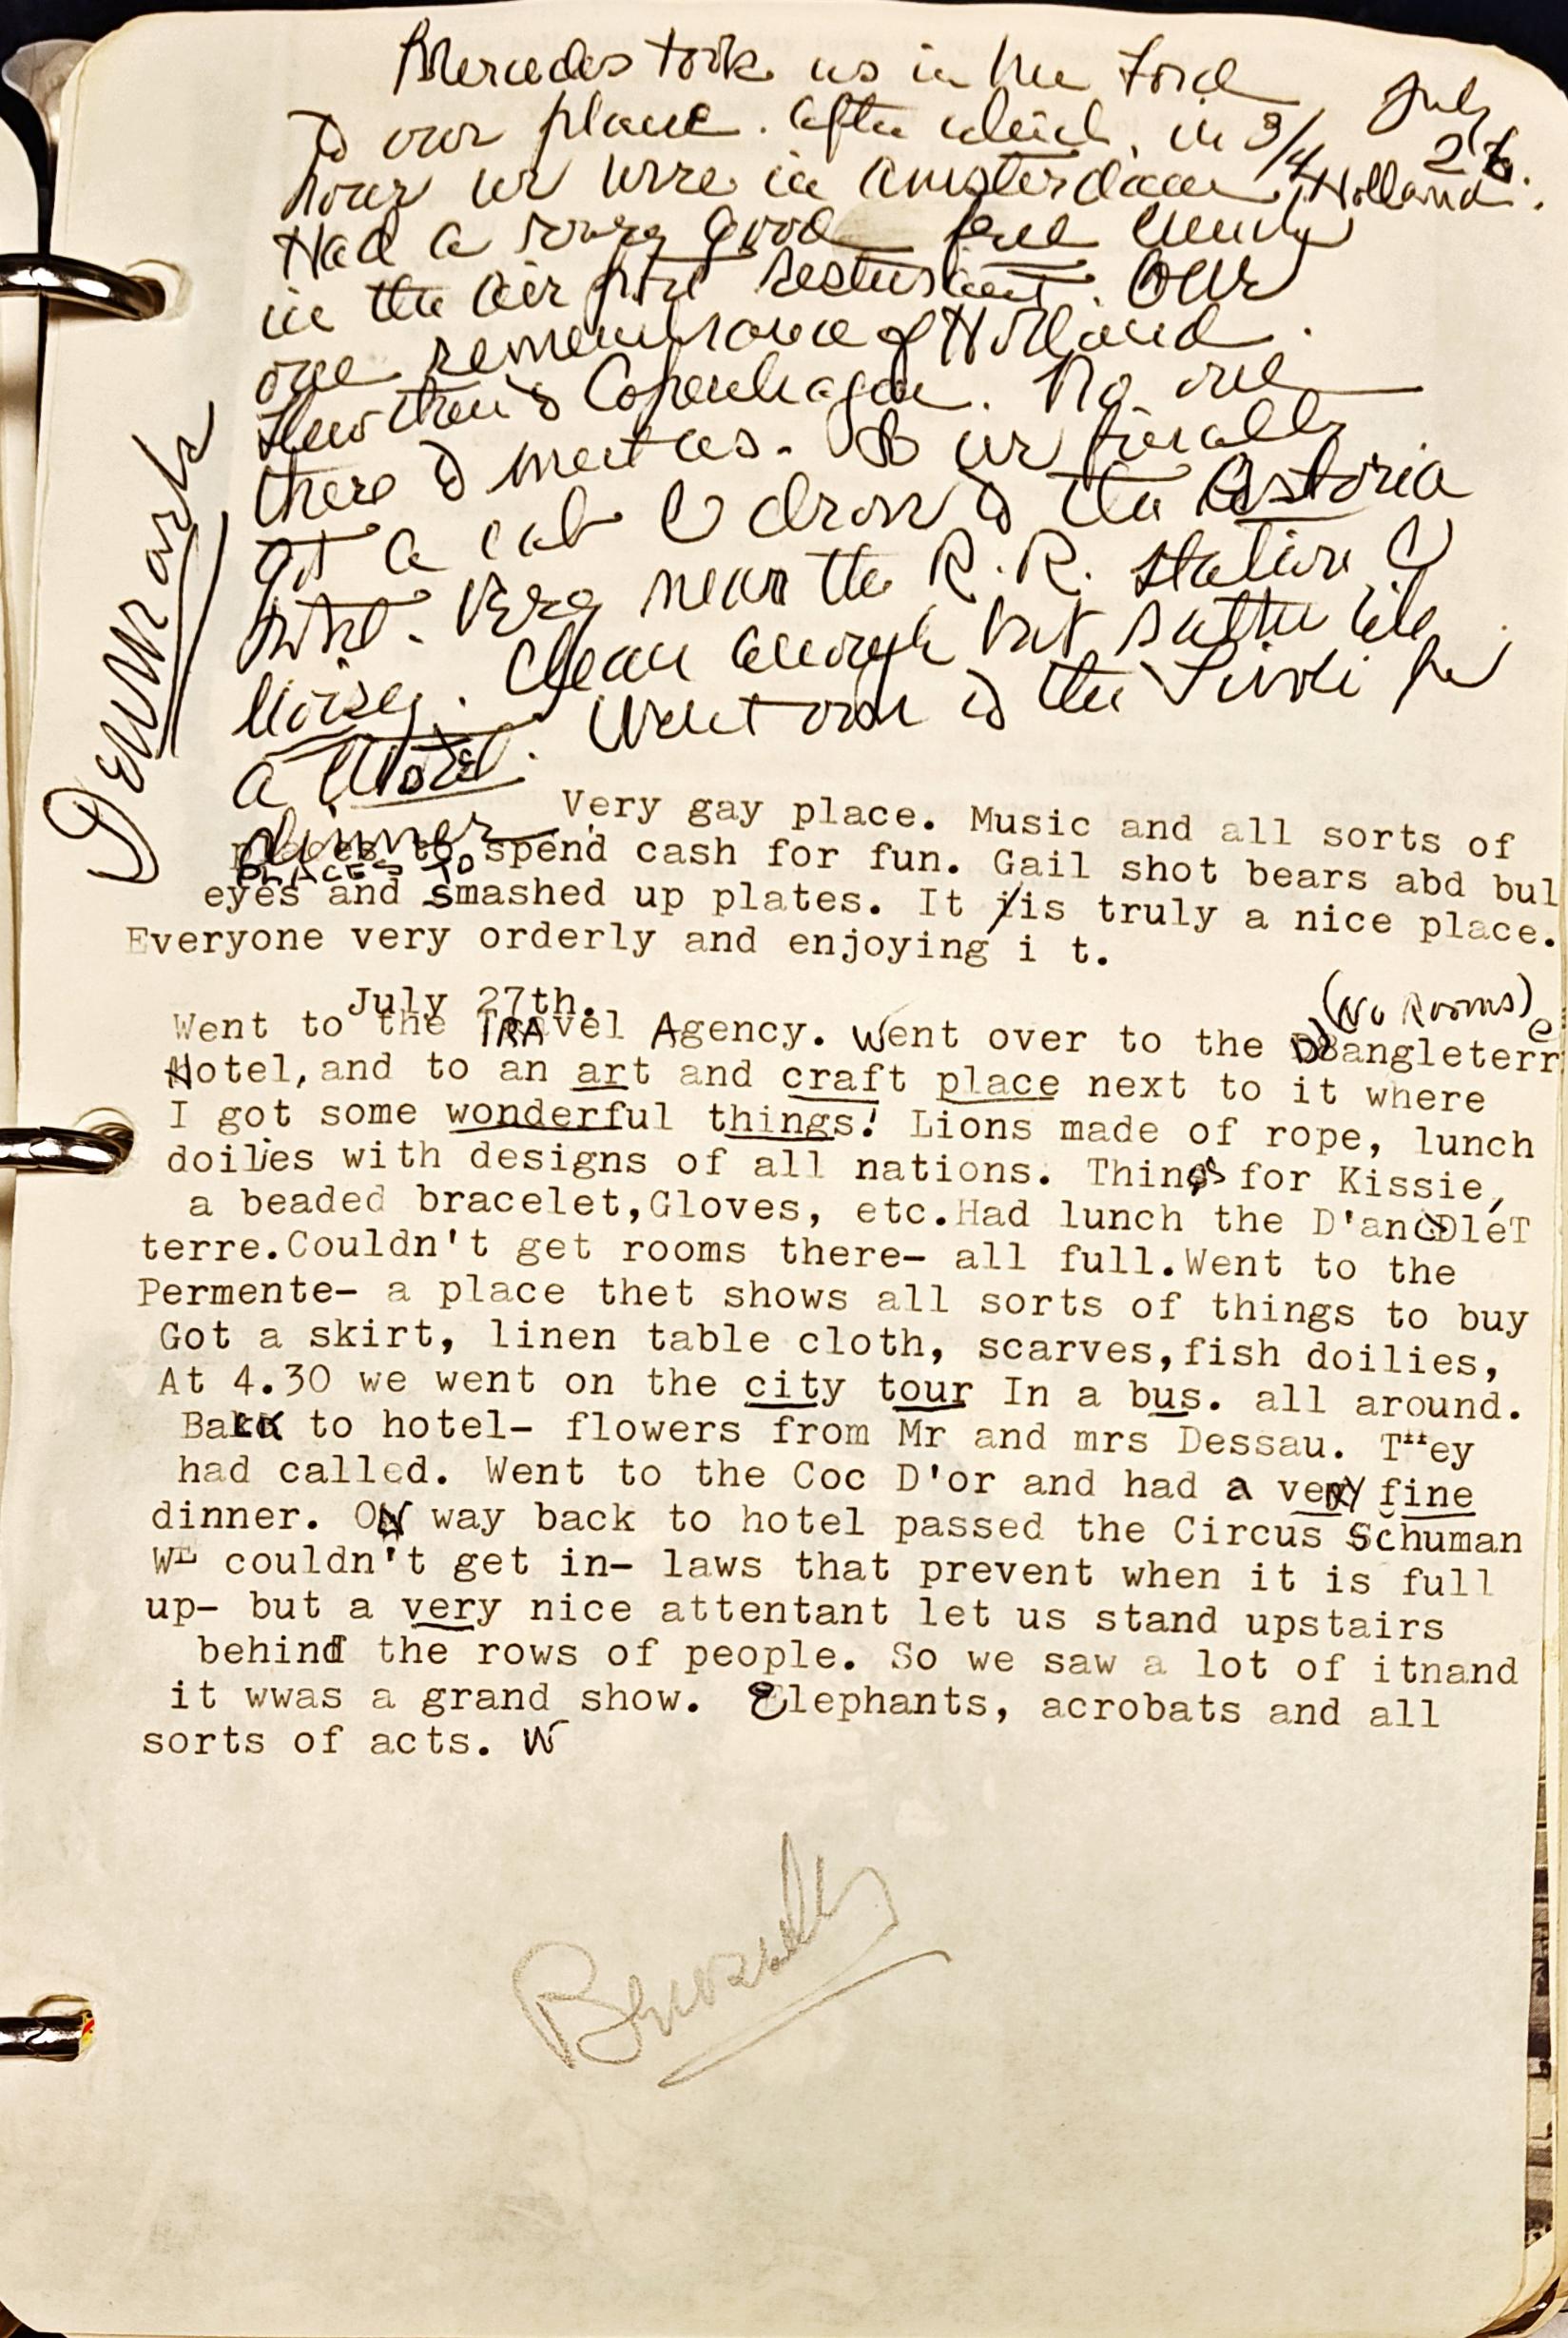 Mercedes took us in her Ford
July
to our plane. After which, in 3/4
26.
hour we were in Amsterdam, Holland.
Had a very good lunch
in the air port resturant. Our
one remembrance of Holland.
Flew then to Copenhagen. No one
there to meet us. So we finally
got a cab & drove to the Astoria
hotel. Very near the R.R. station &
noisey. Clean enough but rather like
a motel. Went over to the Tivoli for
dinner
Denmark
Very gay place. Music and all sorts of
PLACES TO spend cash for fun. Gail shot bears abd bul
eyes and smashed up plates. It is truly a nice place.
Everyone very orderly and enjoying i t.
July 27th.
(No Rooms)
Went to the TRAvel Agency. Went over to the D'angleterre
Hotel,and to an art and craft place next to it where
I got some wonderful things! Lions made of rope, lunch
doilies with designs of all nations. Things for Kissie,
a beaded bracelet,Gloves, etc.Had lunch the D'angleT
terre.Couldn't get rooms there- all full.Went to the
Permente- a place thet shows all sorts of things to buy
Got a skirt, linen table cloth, scarves,fish doilies,
At 4.30 we went on the city tour In a bus. all around.
Back to hotel- flowers from Mr and mrs Dessau. They
had called. Went to the Coc D'or and had a very fine
dinner. ON way back to hotel passed the Circus Schuman
WE couldn't get in- laws that prevent when it is full
up- but a very nice attentant let us stand upstairs
behind the rows of people. So we saw a lot of itnand
it wwas a grand show. Elephants, acrobats and all
sorts of acts. W